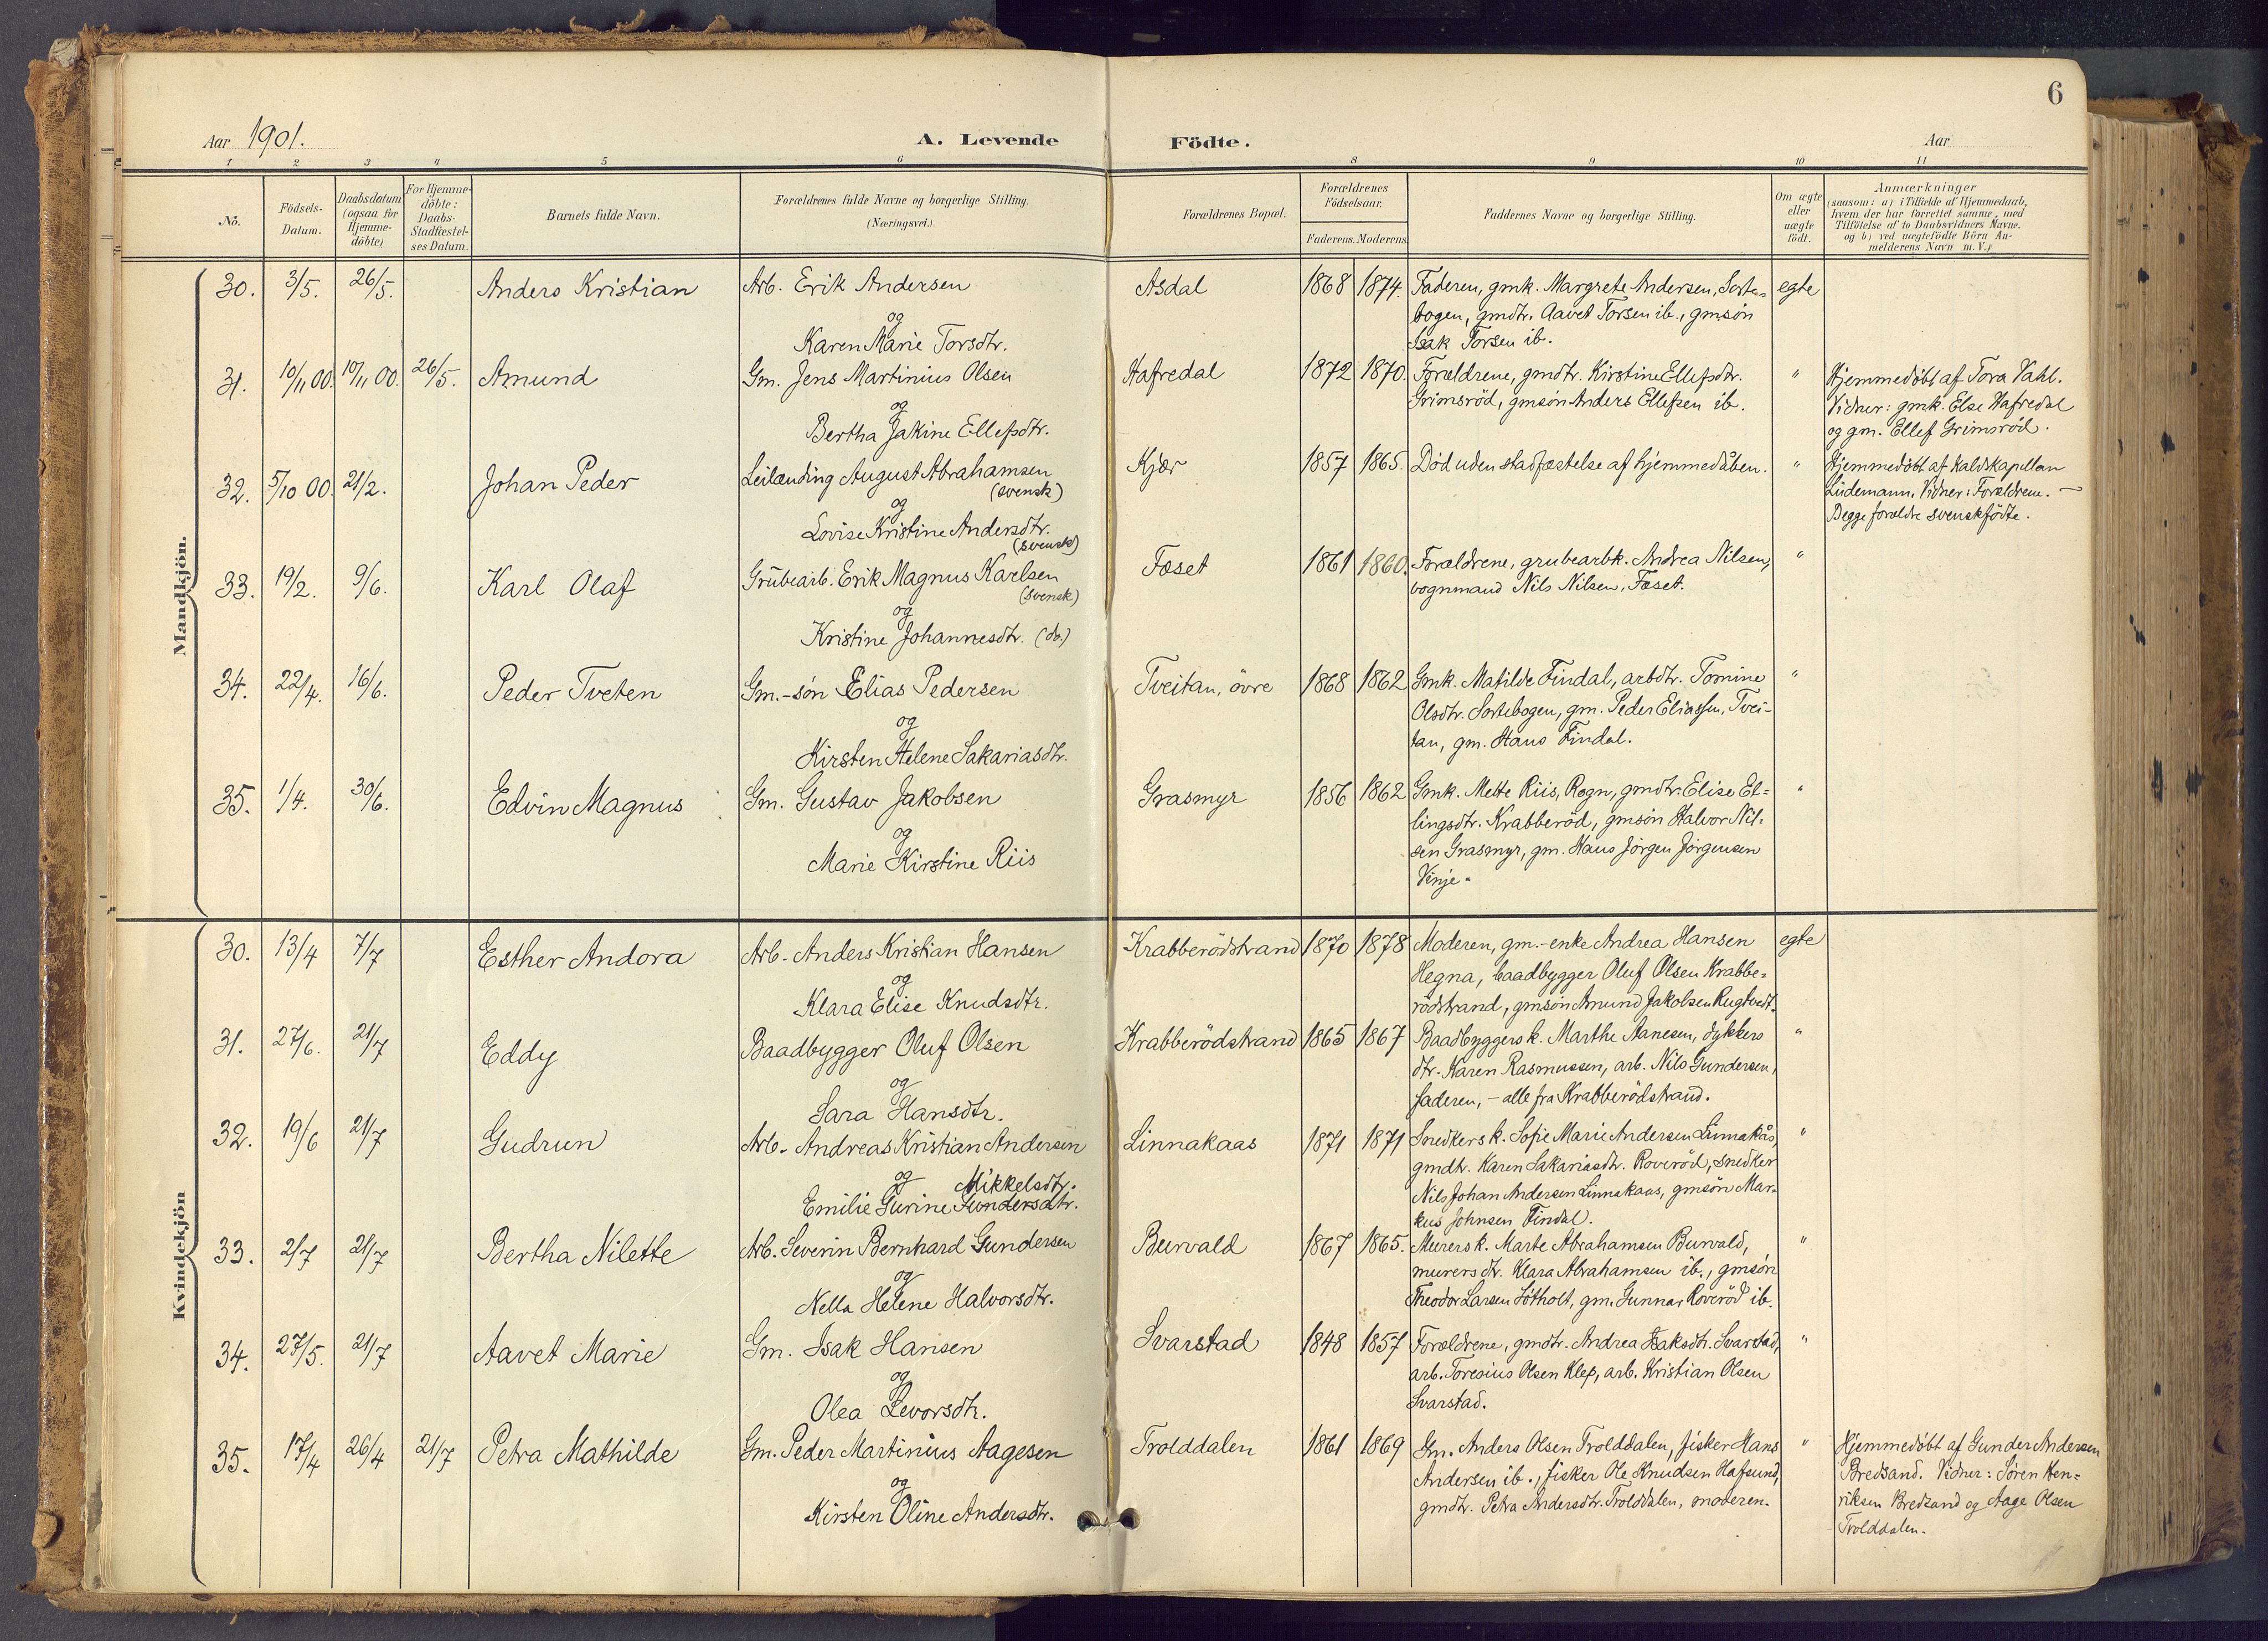 6
Aar 1901. A. Levende Födte. Aar
1 2 3 4 5 6 8 9 10 11
No. Födsels-Datum. Daabsdatum (ogsaa for Hjemme-döbte) For Hjemme-döbte: Daabs-Stadfæstel-ses Datum. Barnets fulde Navn. Forældrenes fulde Navne og borgerlige Stilling. (Næringsvei.) Forældrenes Bopæl. Forældrenes Födselsaar. Faderens. Moderens. Faddernes Navne og borgerlige Stilling. Om ægte eller uægte födt. Anmærkninger (saasom: a) i Tilfælde af Hjemmedaab, hvem der har forrettet samme, med Tilföielse af to Daabsvidners Navne. og b) ved uægtefödte Börn An-melderens Navn m. V.)
Mandkjön.
30. 3/5. 26/5. Anders Kristian Arb. Erik Andersen Asdal 1868 1874. Faderen, gmk. Margrete Andersen, Sorte= egte
og bogen, gmdtr. Aavet Torsen ib., gmsön
Karen Marie Torsdtr. Isak Torsen ib.
31. 10/11 00. 10/11 00. 26/5. Amund Gm. Jens Martinius Olsen Hafredal 1872 1870. Forældrene, gmdtr. Kirstine Ellefsdtr. " Hjemmedöbt af Tora Vahl.
og Grimsröd, gmsön Anders Ellefsen ib. Vidner: gmk. Else Hafredal
Bertha Jakine Ellefsdtr. og gm. Ellef Grimsröd.
32. 5/10 00. 21/2. Johan Peder Leilænding August Abrahamsen Kjær 1857 1865. Död uden stadfæstelse af hjemmedåben. " Hjemmedöbt af kaldskapellan
(svensk) Lüdemann. Vidner: Forældrene. —
og Begge forældre svenskfödte.
Lovise Kristine Andersdtr.
(svensk)
33. 19/2. 9/6. Karl Olaf Grubearb. Erik Magnus Karlsen Fæset 1861 1860. Forældrene, grubearbk. Andrea Nilsen, "
(svensk) vognmand Nils Nilsen, Fæset.
og
Kristine Johannesdtr. (do.)
34. 22/4. 16/6. Peder Tveten Gm.-sön Elias Pedersen Tveitan, övre 1868 1862 Gmk. Matilde Findal, arbdtr. Tomine "
og Olsdtr. Sortebogen, gm. Peder Eliassen, Tvei-
Kirsten Helene Sakariasdtr. tan, gm. Hans Findal.
35. 1/4. 30/6. Edvin Magnus Gm. Gustav Jakobsen Grasmyr 1856 1862 Gmk. Mette Riis, Rogn, gmdtr. Elise El= "
og lingsdtr. Krabberöd, gmsön Halvor Nil=
Marie Kirstine Riis sen Grasmyr, gm. Hans Jörgen Jörgensen
Vinje.
Kvindekjön
30. 13/4 7/7 Esther Andora Arb. Anders Kristian Hansen Krabberödstrand 1870 1878 Moderen, gm.-enke Andrea Hansen egte
og Hegna, baadbygger Oluf Olsen Krabbe=
Klara Elise Knudsdtr. rödstrand, gmsön Amund Jakobsen Rugtvedt.
31. 27/6. 21/7 Eddy Baadbygger Oluf Olsen Krabberödstrand 1865 1867 Baadbyggersk. Marthe Aanesen, dykkers "
og dtr. Karen Rasmussen, arb. Nils Gundersen,
Sara Hansdtr. faderen, – alle fra Krabberödstrand.
32. 19/6 21/7 Gudrun Arb. Andreas Kristian Andersen Linnakaas 1871 1871 Snedkersk. Sofie Marie Andersen Linnakås, "
og Mikkelsdtr. gmdtr. Karen Sakariasdtr. Roveröd, snedker
Emilie Gurine Gundersdtr. Nils Johan Andersen Linnakaas, gmsön Mar=
kus Johnsen Findal.
33. 2/7 21/7 Bertha Nilette Arb. Severin Bernhard Gundersen Burvald 1867 1865. Murersk. Marte Abrahamsen Burvald, "
og murersdtr. Klara Abrahamsen ib., gmsön
Nella Helene Halvorsdtr. Theodor Larsen Götholt, gm. Gunnar Roveröd ib.
34. 27/5. 21/7 Aavet Marie Gm. Isak Hansen Svarstad 1848 1857 Forældrene, gmdtr. Andrea Isaksdtr. Svarstad, "
og arb. Toresius Olsen Klep, arb. Kristian Olsen
Olea Levorsdtr. Svarstad.
35. 17/4 26/4 21/7 Petra Mathilde Gm. Peder Martinius Aagesen Trolddalen 1861 1869 Gm. Anders Olsen Trolddalen, fisker Hans " Hjemmedöbt af Gunder Andersen
og Andersen ib., fisker Ole Knudsen Hafsund, Bredsand. Vidner: Sören Hen=
Kirsten Oline Andersdtr. gmdtr. Petra Andersdtr. Trolddalen, moderen. riksen Bredsand og Aage Olsen
Trolddalen.